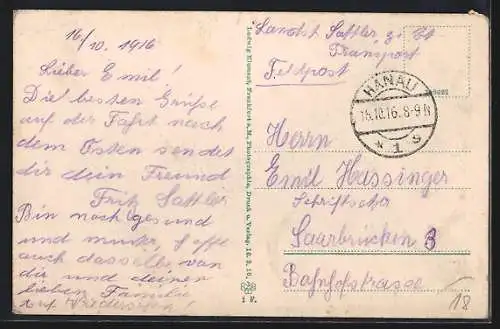 16/10. 1916
Lieber Emil!
Die besten Grüße
auf der Fahrt nach
dem Osten sendet
dir dein Freund
Fritz Sattler
Bin noch gesund
und munter, hoffe
auch dasselbe von
dir und deiner
lieben Familie
Auf Wiedersehn!
Ludwig Klement, Frankfurt a. M., Photographie, Druck u. Verlag.
1 F.
Landst Sattler z. Zt
Transport
Feldpost
HANAU
16.10.16. 8-9 N
* 1 s
Herrn
Emil Hassinger
Schriftsetzer
Saarbrücken 3
Bahnhofstrasse
18